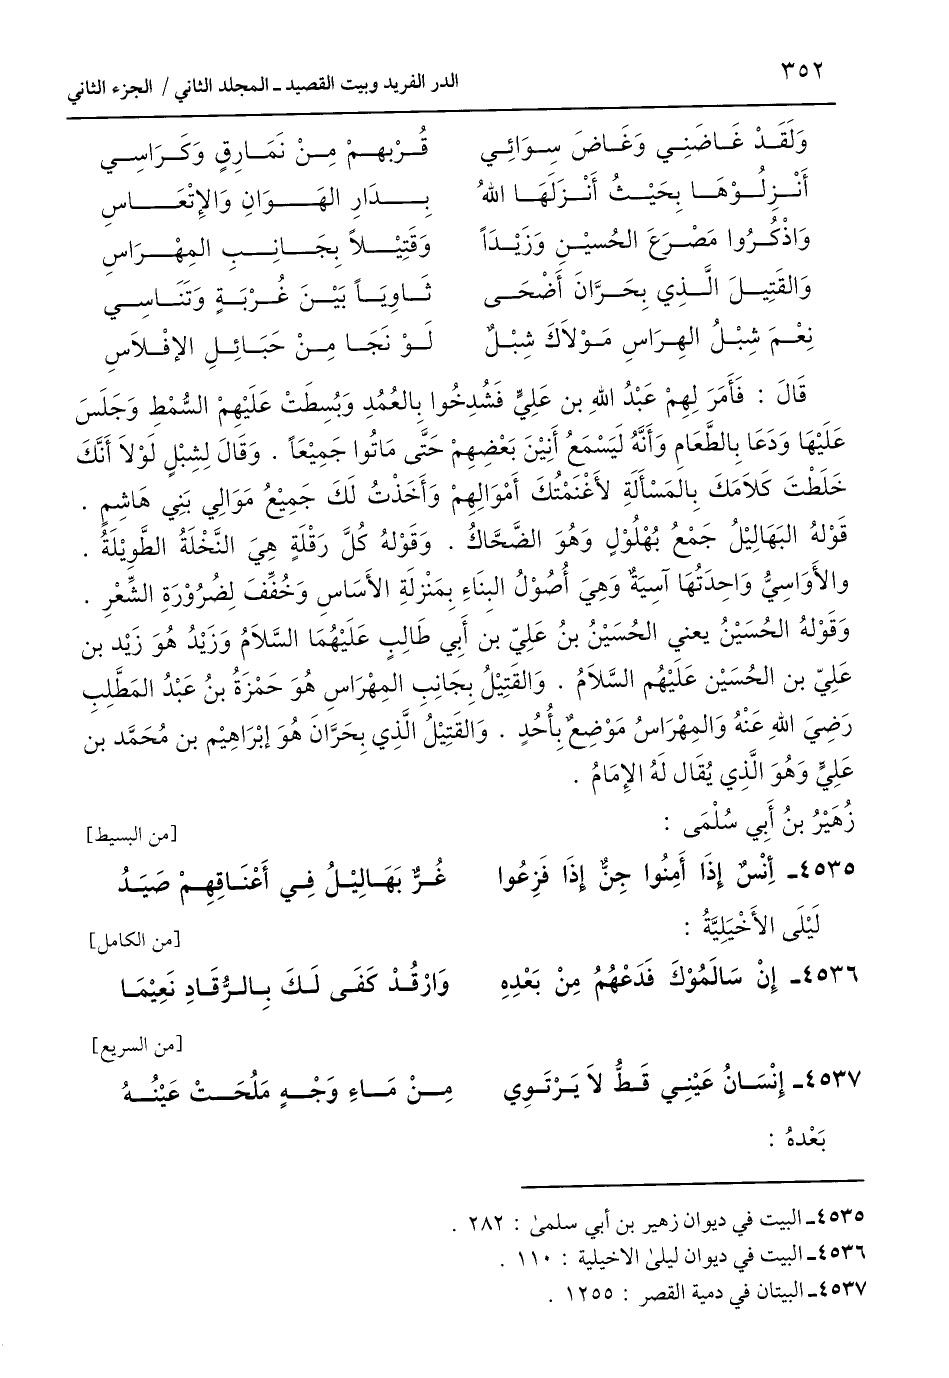 ٣٥٢
الدر الفريد وبيت القصيد ـ المجلد الثاني / الجزء الثاني
وَلَقَدْ غَاضَنِي وَغَاضَ سِوَائِي قُرْبُهم مِنْ نَمَارِقٍ وَكَرَاسِي
أَنْزِلُوْهَا بِحَيْثُ أَنْزَلَهَا اللهُ بِدَارِ الهَوَانِ وَالإِتْعَاسِ
وَاذْكُرُوا مَصْرَعَ الحُسَيْنِ وَزَيْداً وَقَتِيْلاً بِجَانِبِ المِهْرَاسِ
وَالقَتِيلَ الَّذِي بِحَرَّانَ أَضْحَى ثَاوِيَاً بَيْنَ غُرْبَةٍ وَتَنَاسِي
نِعْمَ شِبْلُ الهِرَاسِ مَوْلاَكَ شِبْلٌ لَوْ نَجَا مِنْ حَبَائِلِ الإِفْلاَسِ
قَالَ : فَأَمَرَ لِهِمْ عَبْدُ اللهِ بن عَلِيٍّ فَشُدِخُوا بِالعُمُدِ وَبُسِطَتْ عَلَيْهِمْ السُّمْطِ وَجَلَسَ
عَلَيْهَا وَدَعَا بِالطَّعَامِ وَأَنَّهُ لَيَسْمَعُ أَنِيْنَ بَعْضِهِمْ حَتَّى مَاتُوا جَمِيْعَاً . وَقَالَ لِشِبْلٍ لَوْلاَ أَنَّكَ
خَلَطْتَ كَلاَمَكَ بِالمَسأَلَةِ لأَغْنَمْتُكَ أَمْوَالِهِمْ وَأَخَذْتُ لَكَ جَمِيْعُ مَوَالِي بَنِي هَاشِمٍ .
قَوْلهُ البَهَالِيْلُ جَمْعُ بُهْلُوْلٍ وَهُوَ الضَّحَّاكُ . وَقَوْلهُ كُلَّ رَقْلَةٍ هِيَ النَّخْلَةُ الطَّوِيْلَةُ .
والأَوَاسِيُّ وَاحِدَتُهَا آسِيَةٌ وَهِيَ أُصُوْلُ البِنَاءِ بِمَنْزِلَةِ الأَسَاسِ وَخُفِّفَ لِضُرُوْرَةِ الشِّعْرِ .
وَقَوْلهُ الحُسَيْنُ يعني الحُسَيْنُ بنُ عَلِيّ بن أَبِي طَالِبٍ عَلَيْهُمَا السَّلاَمُ وَزَيْدُ هُوَ زَيْد بن
عَلِيّ بن الحُسَيْن عَلَيْهُم السَّلاَمُ . وَالقَتِيْلُ بِجَانِبِ المِهْرَاسِ هُوَ حَمْزَةُ بنُ عَبْدُ المَطَّلِبِ
رَضِيَ اللهِ عَنْهُ وَالمِهْرَاسُ مَوْضِعٌ بِأُحُدٍ . وَالقَتْيْلُ الَّذِي بِحَرَّانَ هُوَ إِبْرَاهِيْم بن مُحَمَّد بن
عَلِيٍّ وَهُوَ الَّذِي يُقَال لَهُ الإِمَامُ .
زُهَيْرُ بنُ أَبِي سُلْمَى :
[من البسيط]
٤٥٣٥ـ أِنْسٌ إِذَا أَمِنُوا جِنٌّ إِذَا فَزِعُوا غُرٌّ بَهَالِيْلُ فِي أَعْنَاقِهِمْ صَيَدُ
لَيْلَى الأَخْيَلِيَّةُ :
[من الكامل]
٤٥٣٦ـ إِنْ سَالَمُوْكَ فَدَعْهُمُ مِنْ بَعْدِهِ وَارْقُدْ كَفَى لَكَ بِالرُّقَادِ نَعِيْمَا
[من السريع]
٤٥٣٧ـ إِنْسَانُ عَيْنِي قَطُّ لاَ يَرْتَوِي مِنْ مَاءِ وَجْهٍ مَلُحَتْ عَيْنُهُ
بَعْدهُ :
٤٥٣٥ـ البيت في ديوان زهير بن أبي سلمىٰ : ٢٨٢ .
٤٥٣٦ـ البيت في ديوان ليلىٰ الاخيلية : ١١٠ .
٤٥٣٧ـ البيتان في دمية القصر : ١٢٥٥ .